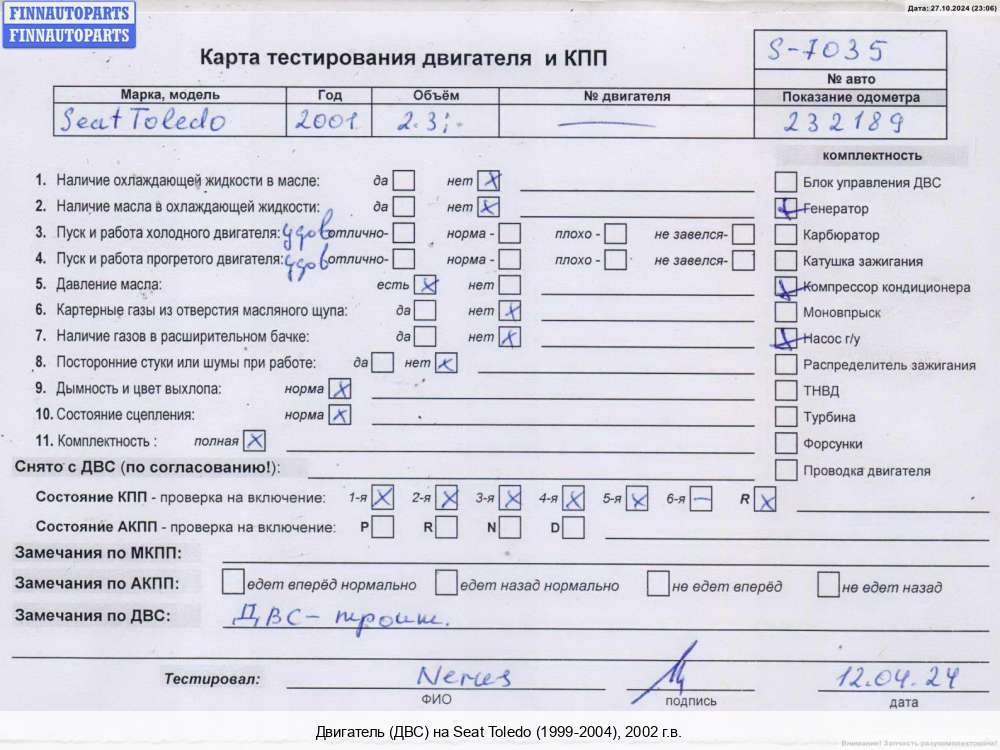 FINNAUTOPARTS
FINNAUTOPARTS
Дата: 27.10.2024 (23:06)
Карта тестирования двигателя и КПП
S-7035
№ авто
Марка, модель Год Объём № двигателя Показание одометра
Seat Toledo 2001 2.3;- — 232189
комплектность
1. Наличие охлаждающей жидкости в масле: да нет X
Блок управления ДВС
2. Наличие масла в охлаждающей жидкости: да нет X
Генератор
3. Пуск и работа холодного двигателя: удов отлично- норма - плохо - не завелся-
Карбюратор
4. Пуск и работа прогретого двигателя: удов отлично- норма - плохо - не завелся-
Катушка зажигания
5. Давление масла: есть X нет
Компрессор кондиционера
6. Картерные газы из отверстия масляного щупа: да нет X
Моновпрыск
7. Наличие газов в расширительном бачке: да нет X
Насос г/у
8. Посторонние стуки или шумы при работе: да нет X
Распределитель зажигания
9. Дымность и цвет выхлопа: норма X
ТНВД
10. Состояние сцепления: норма X
Турбина
11. Комплектность : полная X
Форсунки
Снято с ДВС (по согласованию!):
Проводка двигателя
Состояние КПП - проверка на включение: 1-я X 2-я X 3-я X 4-я X 5-я X 6-я — R X
Состояние АКПП - проверка на включение: P R N D
Замечания по МКПП:
Замечания по АКПП: едет вперёд нормально едет назад нормально не едет вперёд не едет назад
Замечания по ДВС: ДВС - троит.
Тестировал: 12.04.24
ФИО подпись дата
Двигатель (ДВС) на Seat Toledo (1999-2004), 2002 г.в.
Внимание! Запчасть разукомплектована!